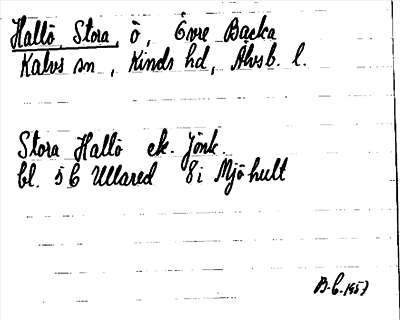 Hallö, Stora, ö, Övre Backa
Kalvs sn, Kinds hd, Älvsb. l.
Stora Hallö ek. Jönk.
bl. 5 C Ullared 8 i Mjöhult
B.C. 1957